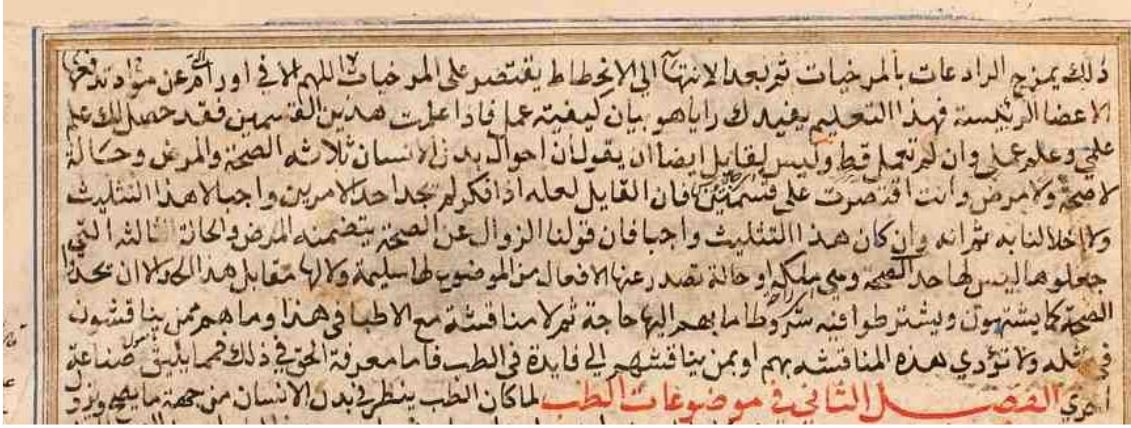 ذلك يمزج الرادعات بالمرخيات ثم بعد الانتهآ الى الانحطاط يقتصر على المرخيات اللهم الا فى اورام عن مواد تدفعها
الاعضا الرئيسة فهذا التعليم يفيدك رايا هو بيان كيفيته عمل فاذا علمت هذين القسمين فقد حصل لك علم
علمي وعلم عملي وان لم تعمل قط وليس لقايل ايضا ان يقول ان احوال بدن الانسان ثلاثه الصحة والمرض وحالة
لا صحة ولا مرض وانت اقتصرت على قسمين فان القايل لعله اذا فكر لم يجد احد الامرين واجبا لا هذا التثليث
ولا اخلالنا به ثم انه وان كان هذا التثليث واجبا فان قولنا الزوال عن الصحة يتضمنه المرض والحالة الثالثه التي
جعلوها ليس لها حد الصحه وهي ملكه او حالة تصدر عنها الافعال من الموضوع لها سليمة ولا لها مقابل هذا الحد الا ان يحدوا
الصحة كما يشتهون ويشترطوا فيه شروطا ما بهم اليها حاجة ثم لا مناقشة مع الاطبا فى هذا وما هم ممن يناقشون
فى مثله ولا تؤدي هذه المناقشه بهم او بمن يناقشهم الى فايدة فى الطب فاما معرفة الحق فى ذلك فمما يليق صناعة
اخرى الفصل الثانى فى موضوعات الطب لما كان الطب ينظر فى بدن الانسان من جهة ما يصح ويزول